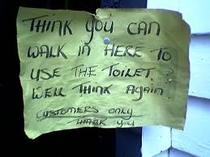 THINK YOU CAN
WALK IN HERE TO
USE THE TOILET?
WELL THINK AGAIN!
CUSTOMERS ONLY
THANK YOU